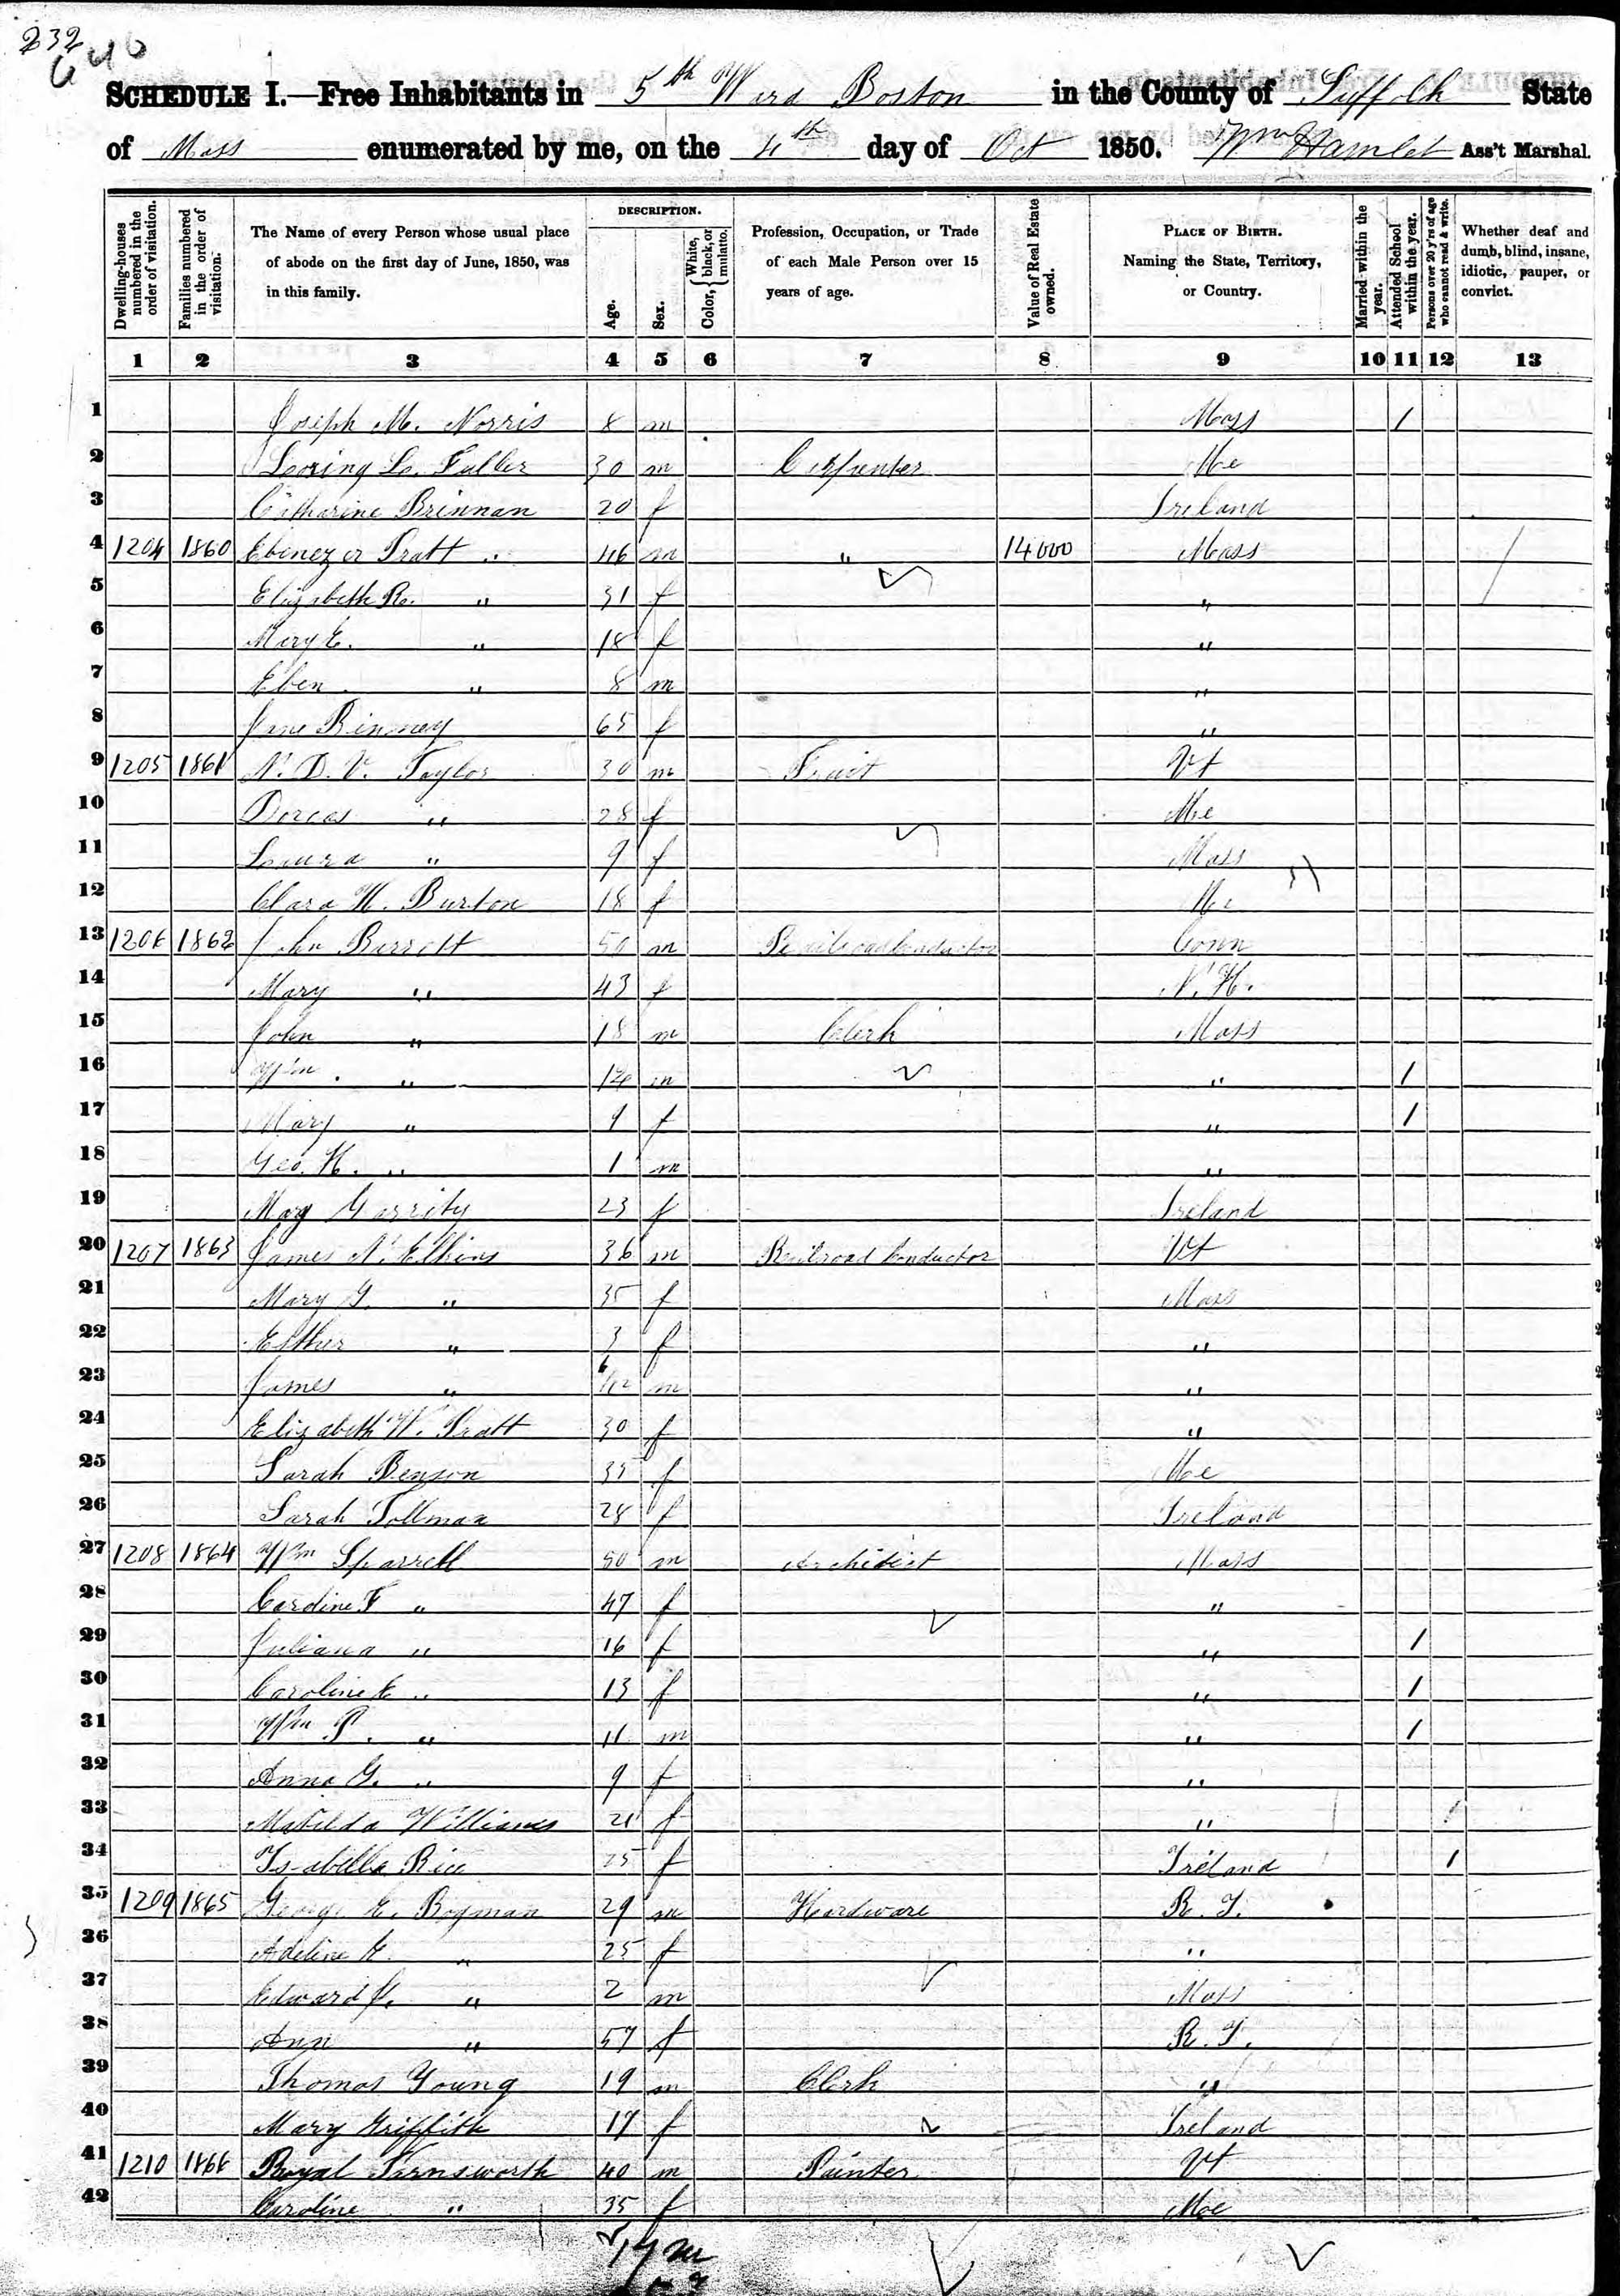 232
SCHEDULE I.—Free Inhabitants in 5th Ward Boston in the County of Suffolk State
of Mass enumerated by me, on the 4th day of Oct 1850. Wm Hamlet Ass't Marshal.
Dwelling-houses numbered in the order of visitation.
Families numbered in the order of visitation.
The Name of every Person whose usual place of abode on the first day of June, 1850, was in this family.
DESCRIPTION.
Age.
Sex.
Color, { White, black, or mulatto.
Profession, Occupation, or Trade of each Male Person over 15 years of age.
Value of Real Estate owned.
PLACE OF BIRTH. Naming the State, Territory, or Country.
Married within the year.
Attended School within the year.
Persons over 20 y'rs of age who cannot read & write.
Whether deaf and dumb, blind, insane, idiotic, pauper, or convict.
1 2 3 4 5 6 7 8 9 10 11 12 13
1 Joseph M. Norris 8 m Mass 1
2 Loring L. Fuller 30 m Carpenter Me
3 Catharine Brinnan 20 f Ireland
4 1204 1860 Ebenezer Pratt 46 m " 14000 Mass
5 Elizabeth R. " 31 f "
6 Mary E. " 18 f "
7 Eben " 8 m "
8 Jane Binney 65 f "
9 1205 1861 N. D. V. Taylor 30 m Fruit Vt
10 Dorcas " 28 f Me
11 Laura " 9 f Mass
12 Clara H. Burton 18 f Me
13 1206 1862 John Barrett 50 m Railroad Conductor Conn
14 Mary " 43 f N. H.
15 John " 18 m Clerk Mass
16 Wm. " m " 1
17 Mary " 9 f " 1
18 Geo. H. " 1 m "
19 Mag Garrity 23 f Ireland
20 1207 1863 James N. Elkins 36 m Railroad Conductor Vt
21 Mary G. " 35 f Mass
22 Esther " 3 f "
23 James " 6/12 m "
24 Elizabeth W. Pratt 30 f "
25 Sarah Benson 35 f Me
26 Sarah Tollman 28 f Ireland
27 1208 1864 Wm Sparrell 50 m Architect Mass
28 Caroline F " 47 f "
29 Juliana " 16 f " 1
30 Caroline E " 13 f " 1
31 Wm P. " 11 m " 1
32 Anna G. " 9 f "
33 Matilda Williams 21 f "
34 Isabella Rice 25 f Ireland 1
35 1209 1865 George E. Bogman 29 m Hardware R. I.
36 Adeline E. " 25 f "
37 Edward J. " 2 m Mass
38 Ann " 57 f R. I.
39 Thomas Young 19 m Clerk "
40 Mary Griffith 17 f Ireland
41 1210 1866 Royal Farnsworth 40 m Painter Vt
42 Caroline " 35 f Me